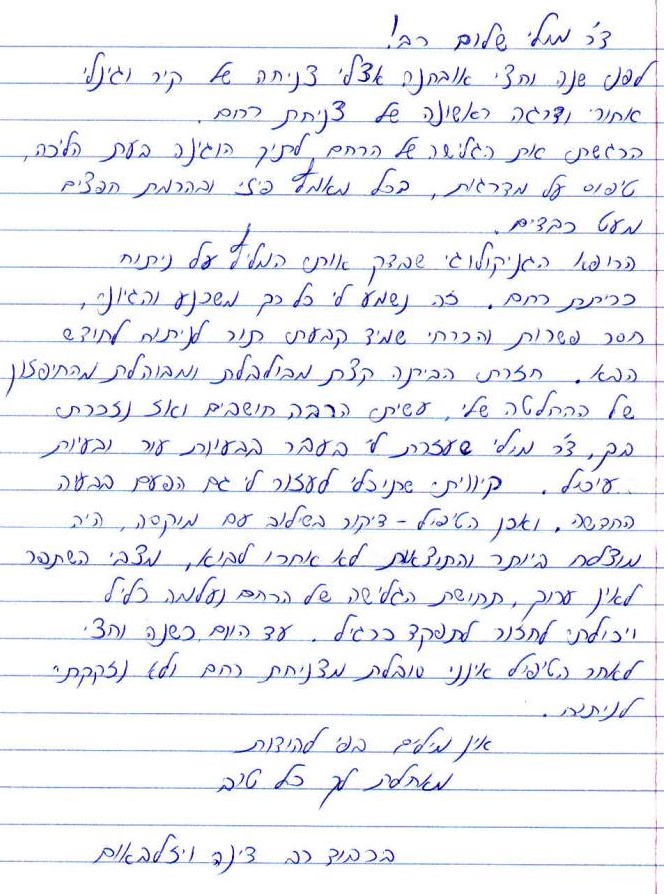 ד"ר מולי שלום רב!
לפני שנה וחצי אובחנה אצלי צניחה של קיר וגינלי
אחורי ודרגה ראשונה של צניחת רחם.
הרגשתי את הגלישה של הרחם לתוך הוגינה בעת הליכה,
טיפוס על מדרגות, בכל מאמץ פיזי ובהרמת חפצים
מעט כבדים.
הרופא הגניקולוגי שבדק אותי המליץ על ניתוח
כריתת רחם. זה נשמע לי כל כך משכנע והגיוני,
חסר פשרות והכרחי שמיד קבעתי תור לניתוח לחודש
הבא. חזרתי הביתה קצת מבולבלת ומבוהלת מהחיפזון
של ההחלטה שלי, עשיתי הרבה חושבים ואז נזכרתי
בך, ד"ר מולי שעזרת לי בעבר בבעיות עור ובעיות
עיכול. קיוויתי שתוכלי לעזור לי גם הפעם בבעיה
החדשה. ואכן הטיפול - דיקור בשילוב עם מוקסה, היה
מוצלח ביותר והתוצאות לא אחרו לבוא, מצבי השתפר
לאין ערוך, תחושת הגלישה של הרחם נעלמה כליל
ויכולתי לחזור לתפקד כרגיל. עד היום כשנה וחצי
לאחר הטיפול אינני סובלת מצניחת רחם ולא נזקקתי
לניתוח.
אין מילים בפי להודות
מאחלת לך כל טוב
בכבוד רב דינה ויזלבאום